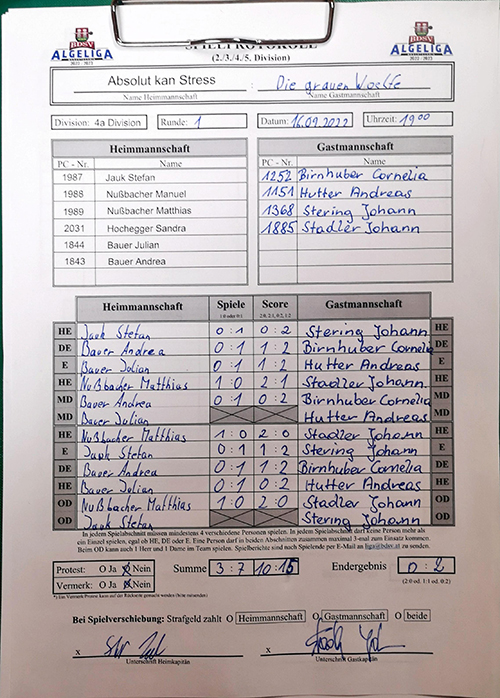 BDSV
ALGELIGA
2022 / 2023
SPIELPROTOKOLL
BDSV
ALGELIGA
2022 / 2023
(2./3./4./5. Division)
Absolut kan Stress : Die grauen Woelfe
Name Heimmannschaft Name Gastmannschaft
Division: 4a Division Runde: 1 Datum: 16.09.2022 Uhrzeit: 19 00
Heimmannschaft Gastmannschaft
PC - Nr. Name PC - Nr. Name
1987 Jauk Stefan 1252 Birnhuber Cornelia
1988 Nußbacher Manuel 1151 Hutter Andreas
1989 Nußbacher Matthias 1368 Stering Johann
2031 Hochegger Sandra 1885 Stadler Johann
1844 Bauer Julian
1843 Bauer Andrea
Heimmannschaft Spiele Score Gastmannschaft
1:0 oder 0:1 2:0, 2:1, 0:2, 1:2
HE Jauk Stefan 0 : 1 0 : 2 Stering Johann HE
DE Bauer Andrea 0 : 1 1 : 2 Birnhuber Cornelia DE
E Bauer Julian 0 : 1 1 : 2 Hutter Andreas E
HE Nußbacher Matthias 1 : 0 2 : 1 Stadler Johann HE
MD Bauer Andrea 0 : 1 0 : 2 Birnhuber Cornelia MD
MD Bauer Julian Hutter Andreas MD
HE Nußbacher Matthias 1 : 0 2 : 0 Stadler Johann HE
E Jauk Stefan 0 : 1 1 : 2 Stering Johann E
DE Bauer Andrea 0 : 1 1 : 2 Birnhuber Cornelia DE
HE Bauer Julian 0 : 1 0 : 2 Hutter Andreas HE
OD Nußbacher Matthias 1 : 0 2 : 0 Stadler Johann OD
OD Jauk Stefan Stering Johann OD
In jedem Spielabschnitt müssen mindestens 4 verschiedene Personen spielen. In jedem Spielabschnitt darf keine Person mehr als
ein Einzel spielen, egal ob HE, DE oder E. Eine Person darf in beiden Abschnitten zusammen maximal 3-mal zum Einsatz kommen.
Beim OD kann auch 1 Herr und 1 Dame im Team spielen. Spielberichte sind nach Spielende per E-Mail an liga@bdsv.at zu senden.
Protest: O Ja O Nein Summe 3 : 7 10 : 15 Endergebnis 0 : 2
Vermerk: O Ja O Nein (2:0 od. 1:1 od. 0:2)
*) Ein Vermerk/Protest kann auf der Rückseite gemacht werden (bitte ankreuzen)
Bei Spielverschiebung: Strafgeld zahlt O Heimmannschaft O Gastmannschaft O beide
x x
Unterschrift Heimkapitän Unterschrift Gastkapitän